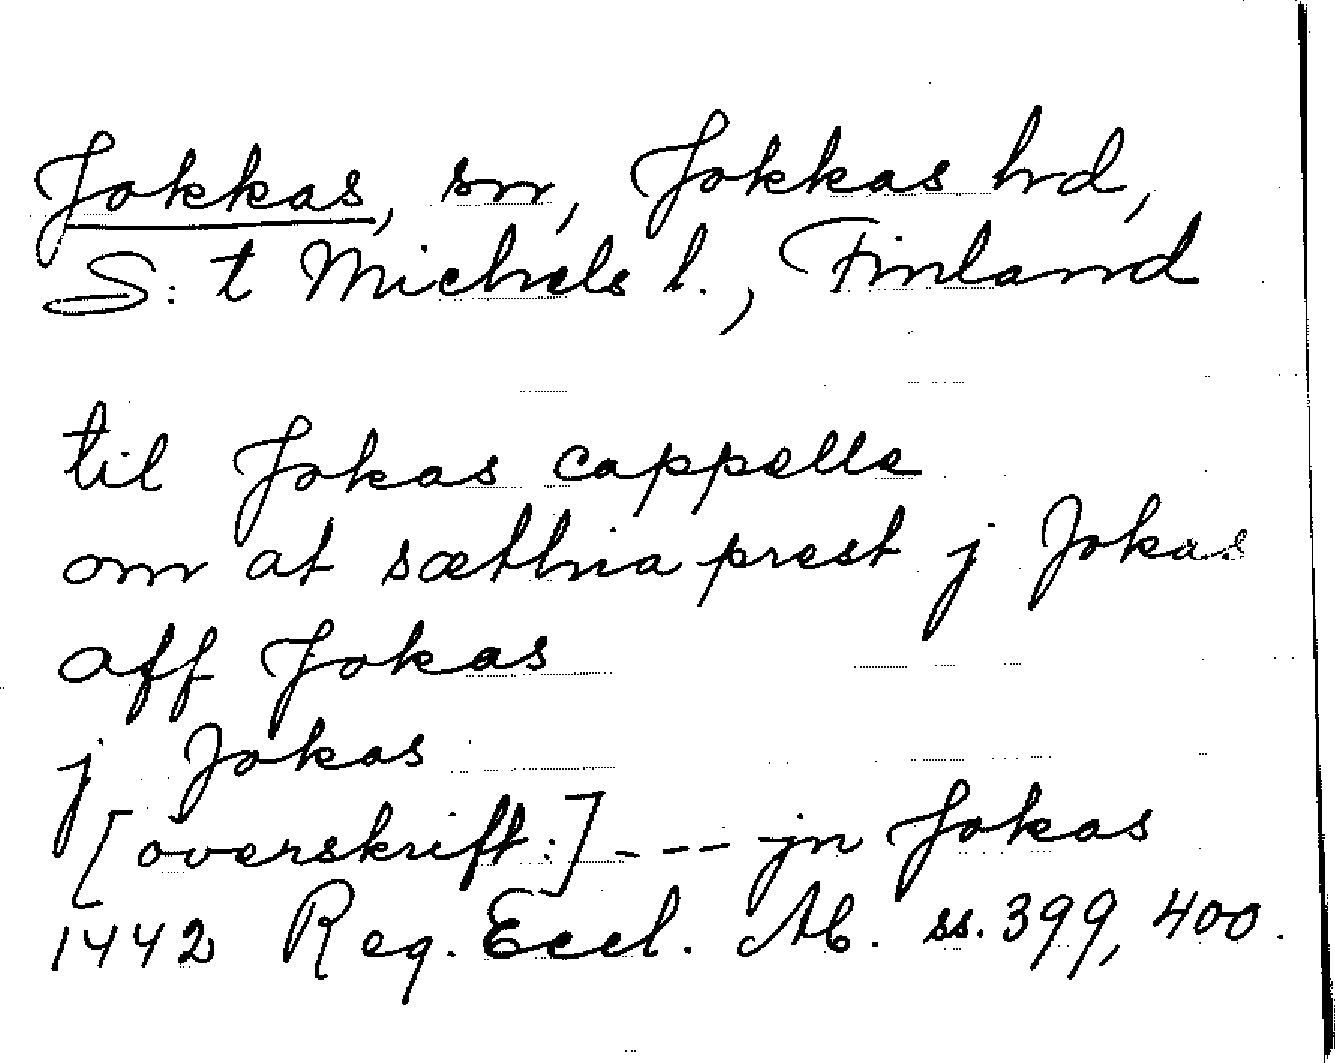 Jokkas, sn, Jokkas hd,
S:t Michels l., Finland
til Jokas cappelle
om at sætthia prest j Jokas
aff Jokas
j Jokas
[överskrift:] --- jn Jokas
1442 Reg. Eccl. Ab. ss. 399, 400.